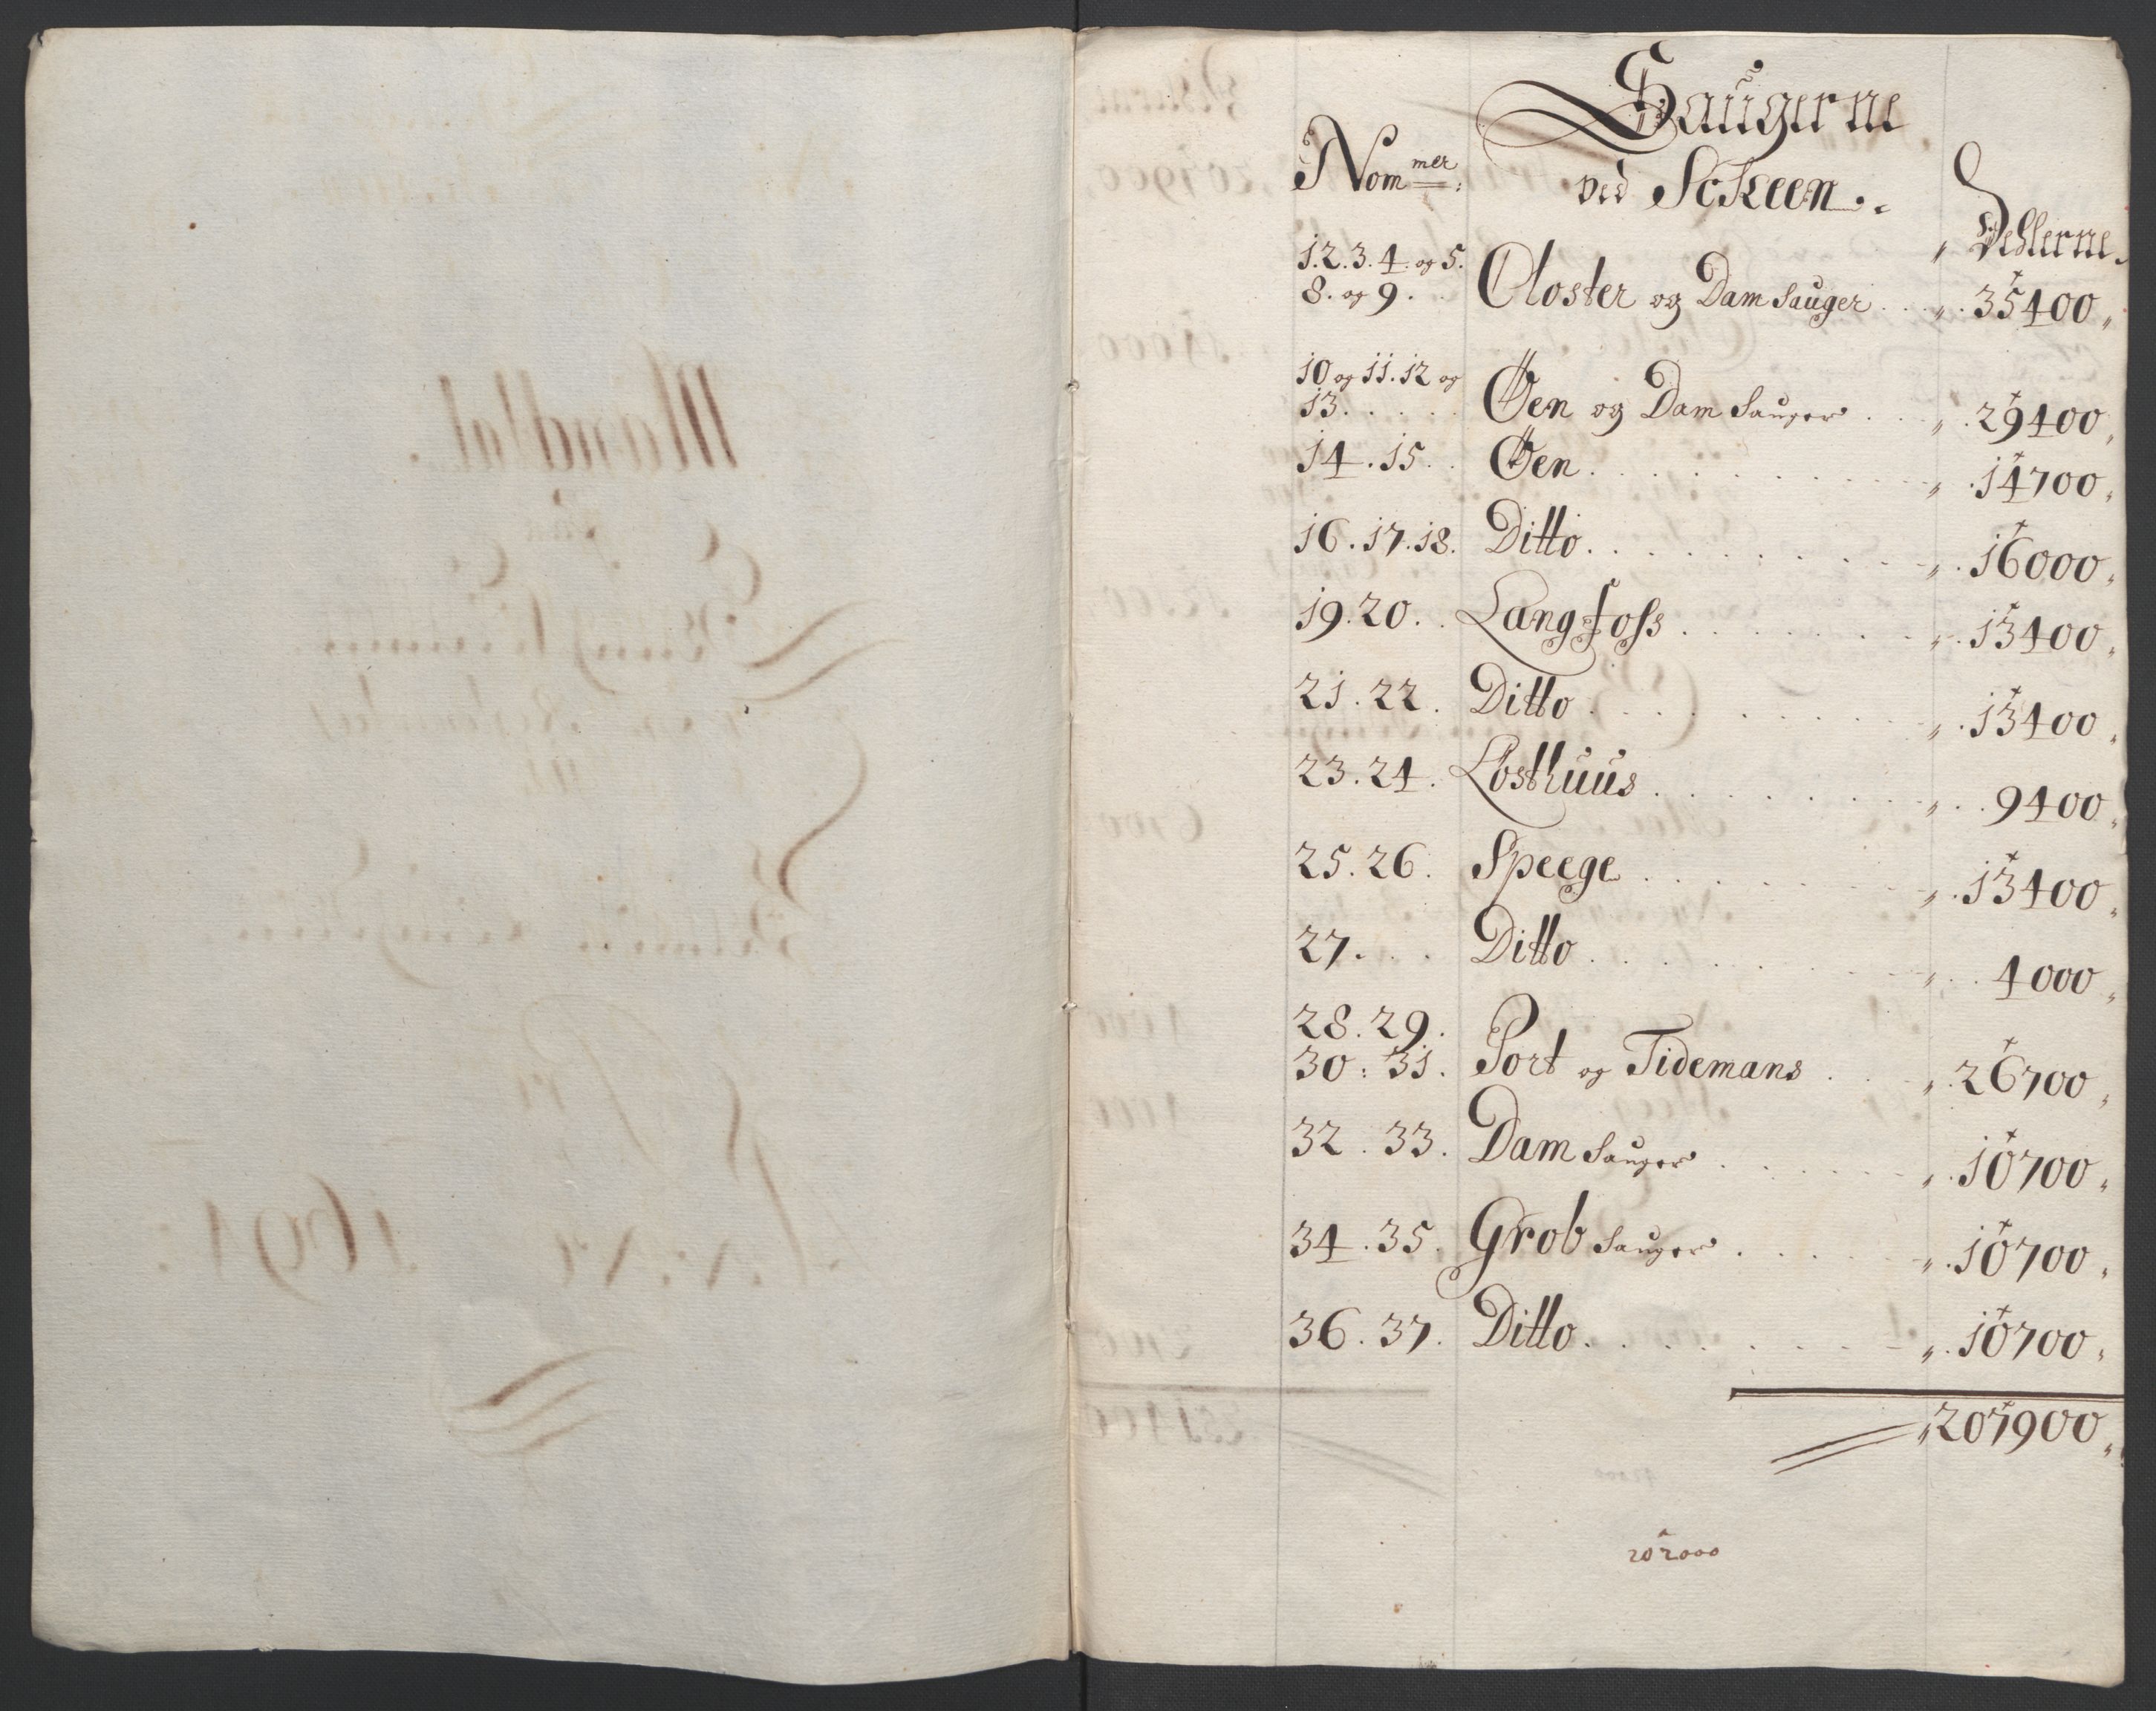 Saugerne
Nommer: ved Sckeen.
Dehlerne.
1.2.3.4. og 5.
8. og 9. Closter og Dam Sauger 35400
10 og 11. 12 og
13. Øen og Dam Sauger 29400
14. 15. Øen 14700
16. 17. 18. Ditto 16000
19. 20. Langfoss 13400
21. 22. Ditto 13400
23. 24. Losthuus 9400
25. 26. Speege 13400
27. Ditto 4000
28. 29.
30: 31. Port og Tidemans 26700
32. 33. Dam Sauger 10700
34. 35. Grob Sauger 10700
36. 37. Ditto 10700
207900